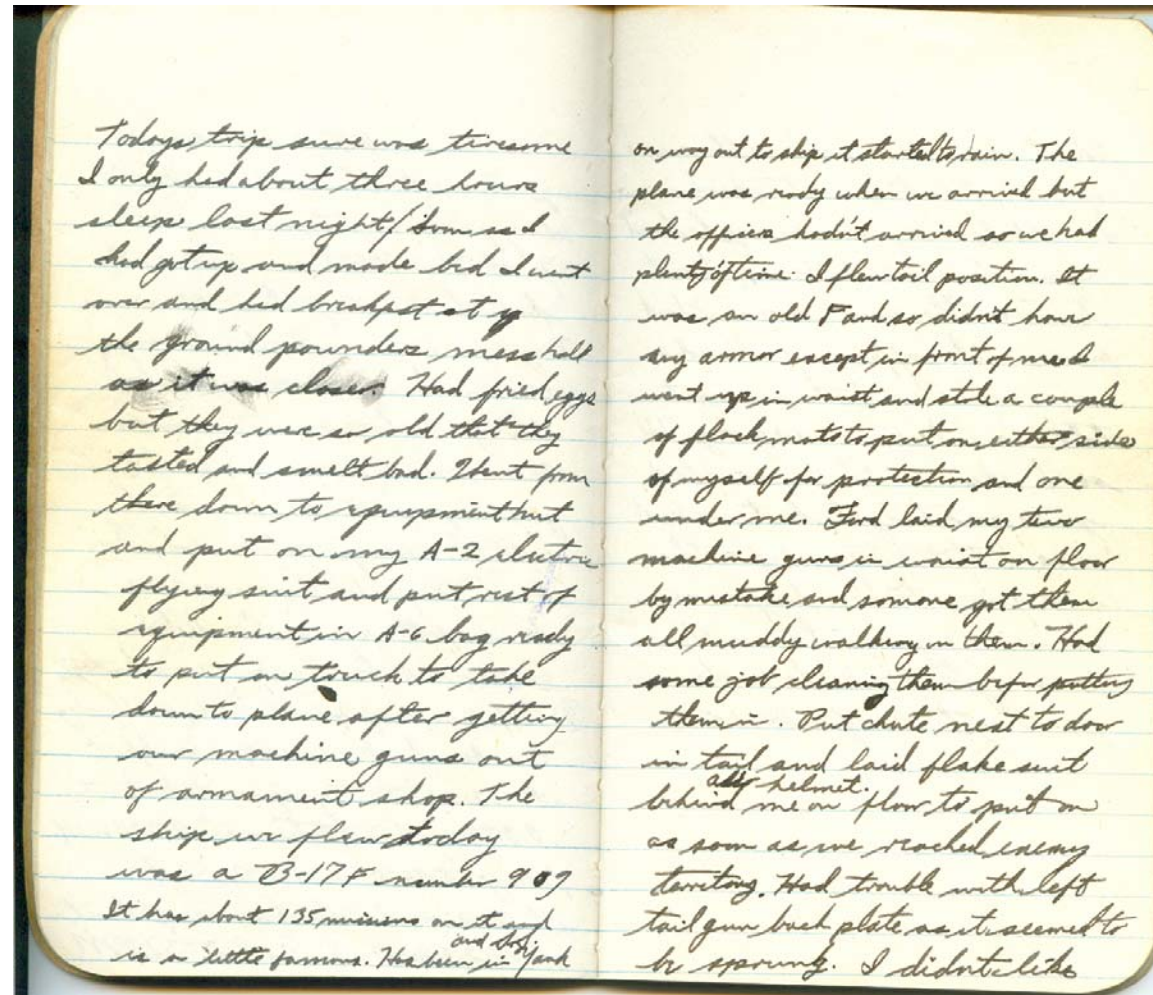 Todays trip sure was tiresome
I only had about three hours
sleep last night/ Soon as I
had got up and made bed I went
over and had breakfast at
the ground pounders mess hall
as it was closer. Had fried eggs
but they were so old that they
tasted and smelt bad. Went from
there down to equipment hut
and put on my A-2 electric
flying suit and put rest of
equipment in A-6 bag ready
to put on truck to take
down to plane after getting
our machine guns out
of armament shop. The
ship we flew today
was a B-17F number 909
It has about 135 missions on it and
is a little famous. Has been in Yank
and
on way out to ship it started to rain. The
plane was ready when we arrived but
the officers hadn't arrived so we had
plenty of time. I flew tail position. It
was an old F and so didn't have
any armor except in front of me I
went up in waist and stole a couple
of flack mats to put on either side
of myself for protection and one
under me. Ford laid my two
machine guns in waist on floor
by mistake and somone got them
all muddy walking on them. Had
some job cleaning them befor putting
them in. Put chute nest to door
in tail and laid flake suit
and helmet.
behind me on floor to put on
as soon as we reached enemy
territory. Had trouble with left
tail gun back plate as it seemed to
be sprung. I didnt like